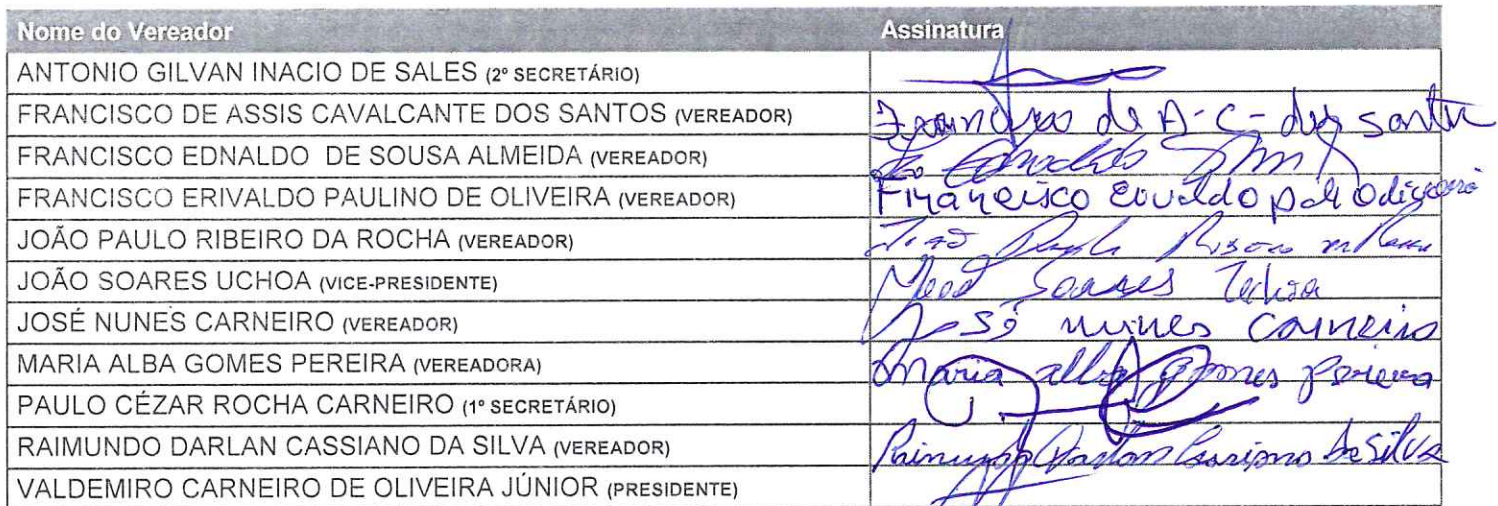 Nome do Vereador Assinatura
ANTONIO GILVAN INACIO DE SALES (2º SECRETÁRIO)
FRANCISCO DE ASSIS CAVALCANTE DOS SANTOS (VEREADOR) Francisco de A-C- dos santo
FRANCISCO EDNALDO DE SOUSA ALMEIDA (VEREADOR) Ednaldo
FRANCISCO ERIVALDO PAULINO DE OLIVEIRA (VEREADOR) Francisco
JOÃO PAULO RIBEIRO DA ROCHA (VEREADOR) João
JOÃO SOARES UCHOA (VICE-PRESIDENTE) Soares Uchoa
JOSÉ NUNES CARNEIRO (VEREADOR) José nunes carneiro
MARIA ALBA GOMES PEREIRA (VEREADORA) Maria alba gomes Pereira
PAULO CÉZAR ROCHA CARNEIRO (1º SECRETÁRIO)
RAIMUNDO DARLAN CASSIANO DA SILVA (VEREADOR) Raimundo Darlan Cassiano da Silva
VALDEMIRO CARNEIRO DE OLIVEIRA JÚNIOR (PRESIDENTE)